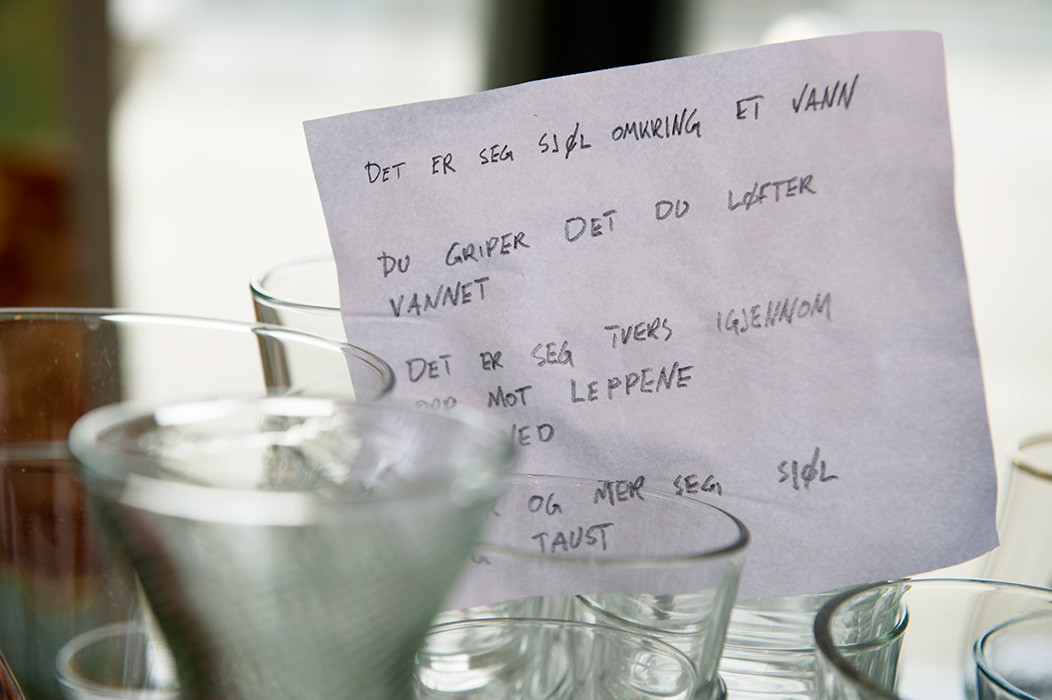 DET ER SEG SJØL OMKRING ET VANN
DU GRIPER DET DU LØFTER
VANNET
DET ER SEG TVERS IGJENNOM
MOT LEPPENE
NED
OG MER SEG SJØL
TAUST